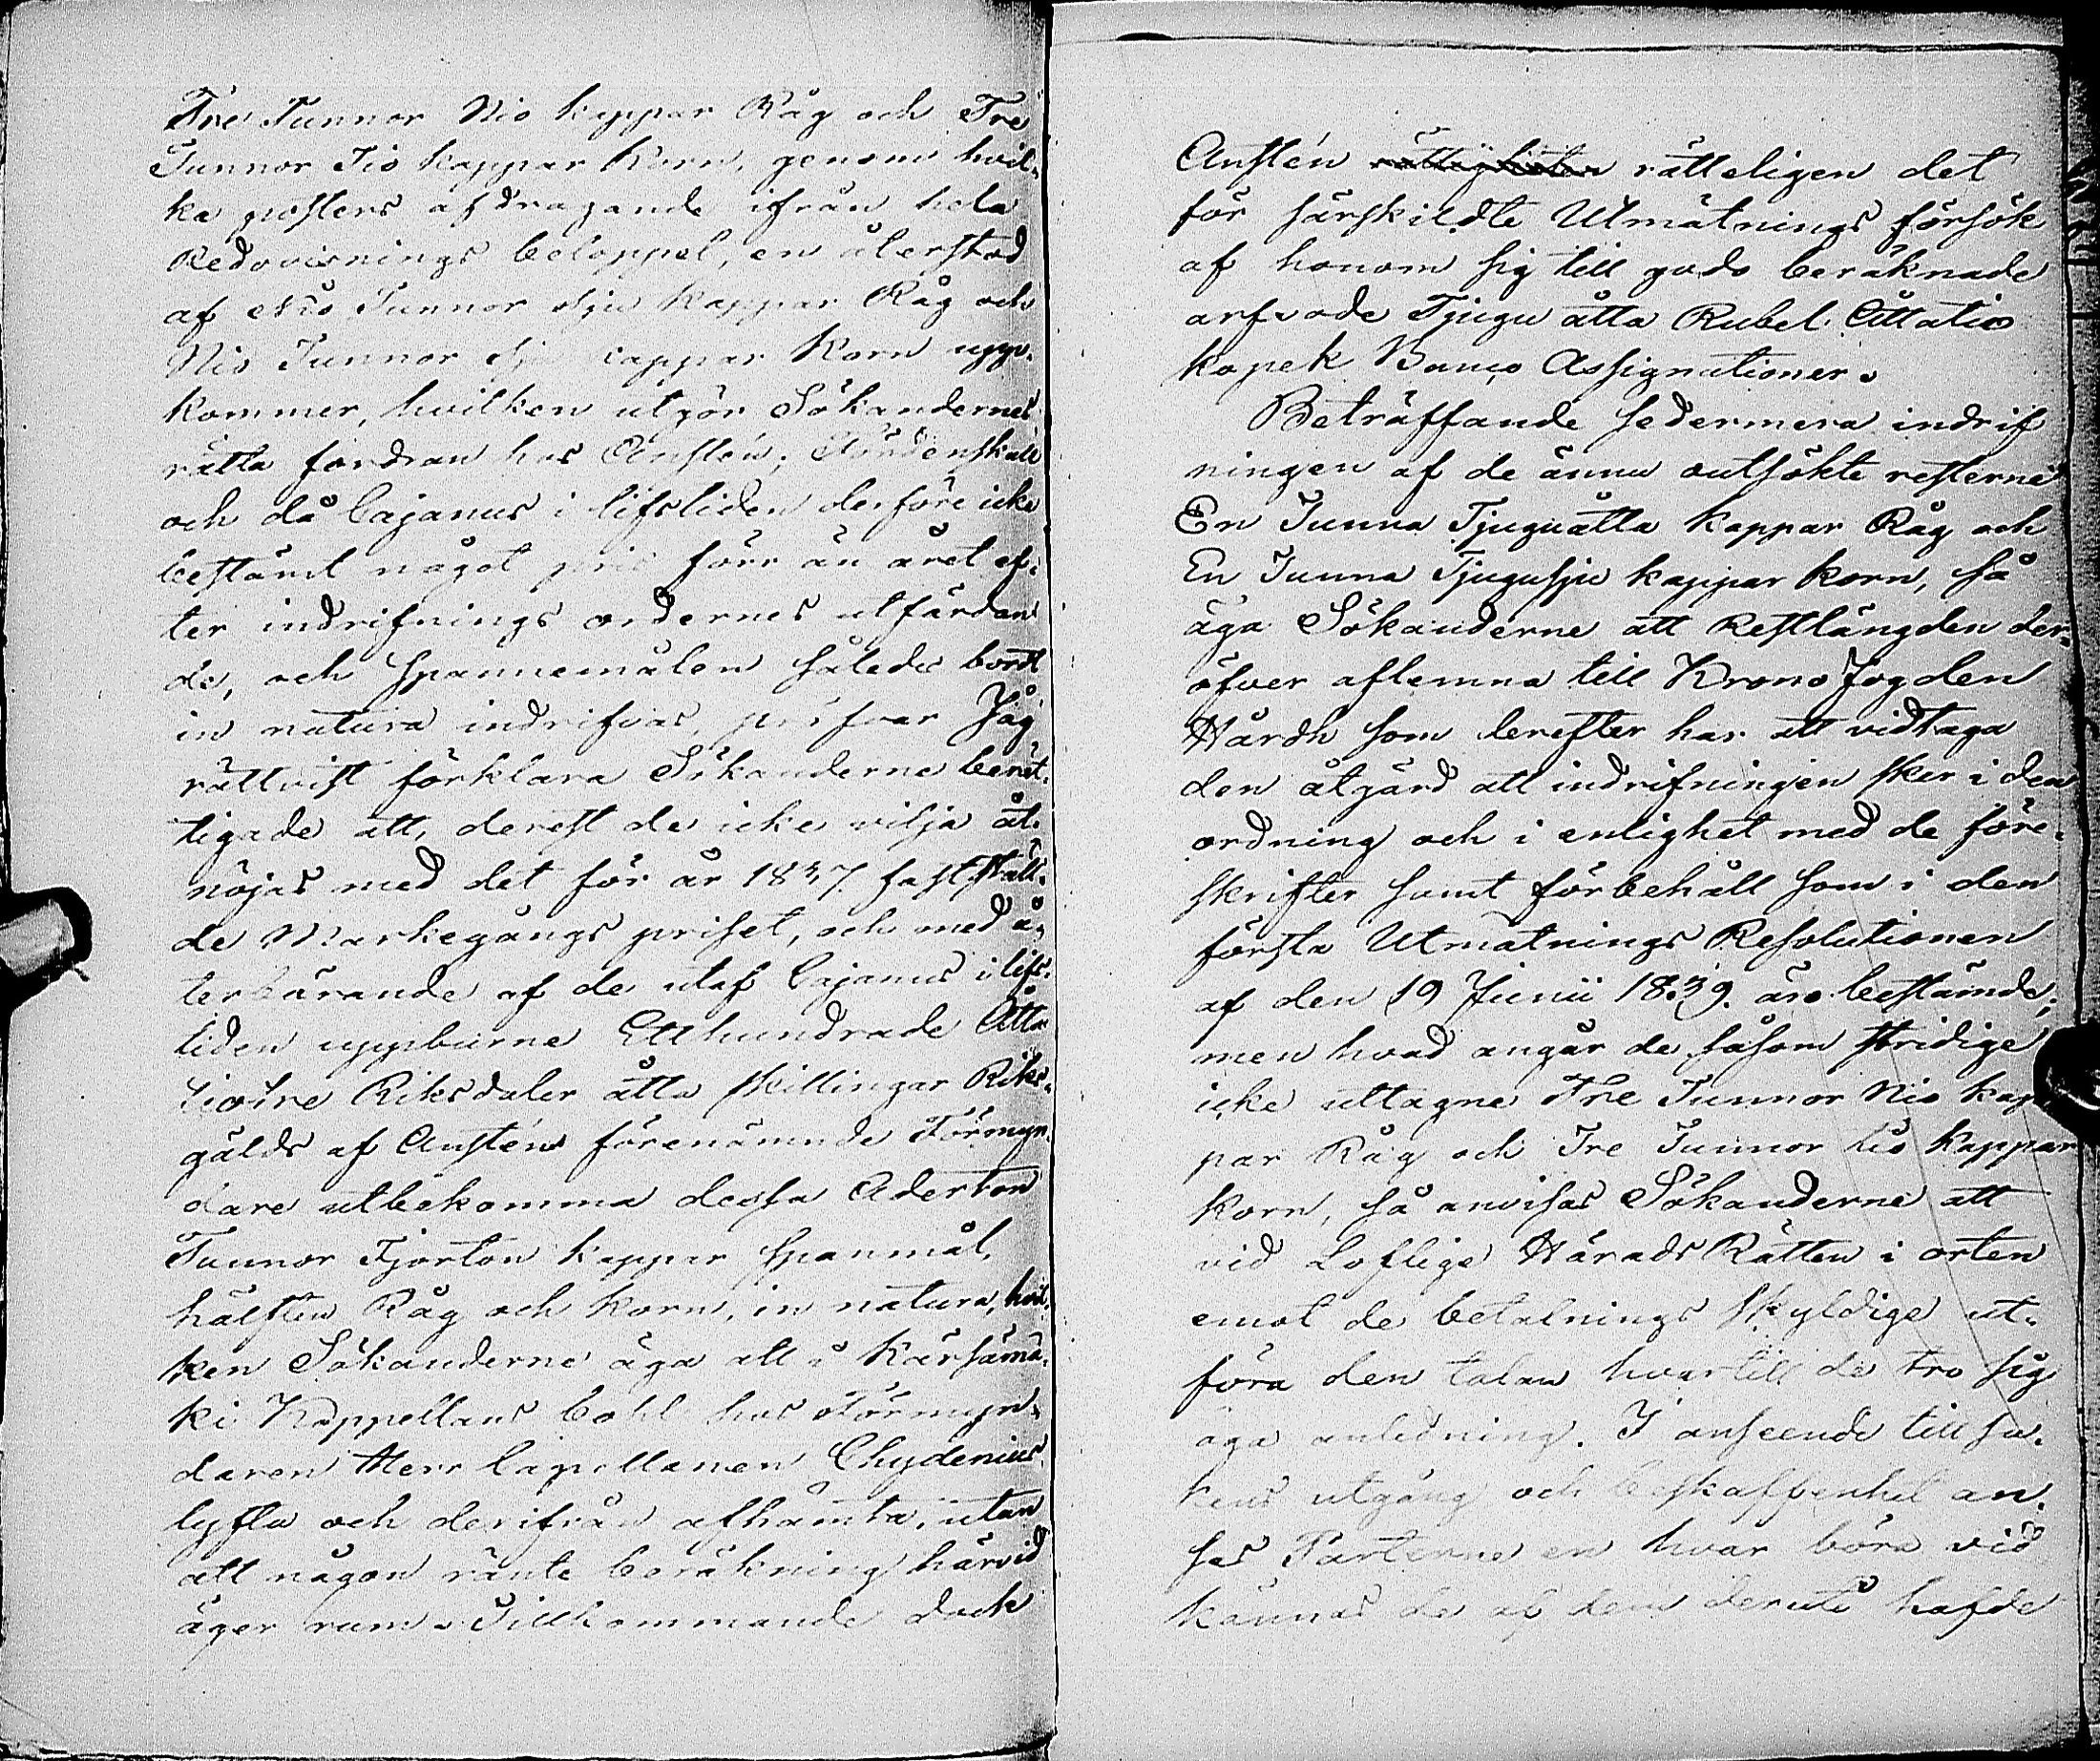 Tre Tunnor Nio kappar Råg och Tre
Tunnor Tio kappar Korn, genom hvil-
ka posters afdragande ifrån hela
Redovisnings beloppet, en återstod
af Nio Tunnor sju kappar Råg och
Nio Tunnor sju kappar Korn upp-
kommer, hvilken utgör Sökandernes
rätta fordran hos Austén;
och då Cajanus i lifstiden derföre icke
bestämt något pris förr än året ef-
ter indrifnings ordernes utfärdan
de, och Spannemålen således bordt
in natura indrifvas, pröfvar Jag
rättvist förklara Sökanderne berät-
tigade att, derest de icke vilja åt-
nöjas med det för år 1837 fastställ-
de Markegångs priset, och med å-
terbärande af de utaf Cajanus i lifs-
tiden uppburne Etthundrade Åtta
tiotre Riksdaler åtta skillingar Riks-
gälds af Austéns förenämnde Förmyn-
dare utbekomma dessa Aderton
Tunnor Fjorton kappar Spanmål,
hälften Råg och Korn, in natura, hvil-
ken Sökanderne äga att i Kärsämä-
ki Kappellans bohl hos Förmyn-
daren Herr Capellanen Chydenius
lyfta och derifrån afhämta, utan
att någon ränte beräkning härvid
äger rum. Tillkommande dock
Austén rätteligen det
för särskildte Utmätnings försök
af honom sig till godo beräknade
arfvode Tjugu åtta Rubel Åttatio
kopek Banco Assignationer.
Beträffande sedermera indrif
ningen af de ännu outsökte resterne
En Tunna Tjuguåtta kappar Råg och
En Tunna Tjugusju kappar korn, så
äga Sökanderne att Restlängden der-
öfver aflemna till KronoFogden
Hårdh som derefter har att vidtaga
den åtgärd att indrifningen sker i den
ordning och i enlighet med de före-
skrifter samt förbehåll som i den
första Utmätnings Resolutionen
af den 19 Junii 1839. äro bestämde;
men hvad angår de såsom stridige
icke uttagne Tre Tunnor Nio kap
par Råg och Tre Tunnor tio kappar
Korn, så anvisas Sökanderne att
vid Loflige HäradsRätten i orten
emot de betalnings skyldige ut-
föra den talan hvartill de tro sig
äga anledning. I anseende till sa-
kens utgång och beskaffenhet an-
ses Parterne en hvar böra vid
kännas de af dem deruti hafde